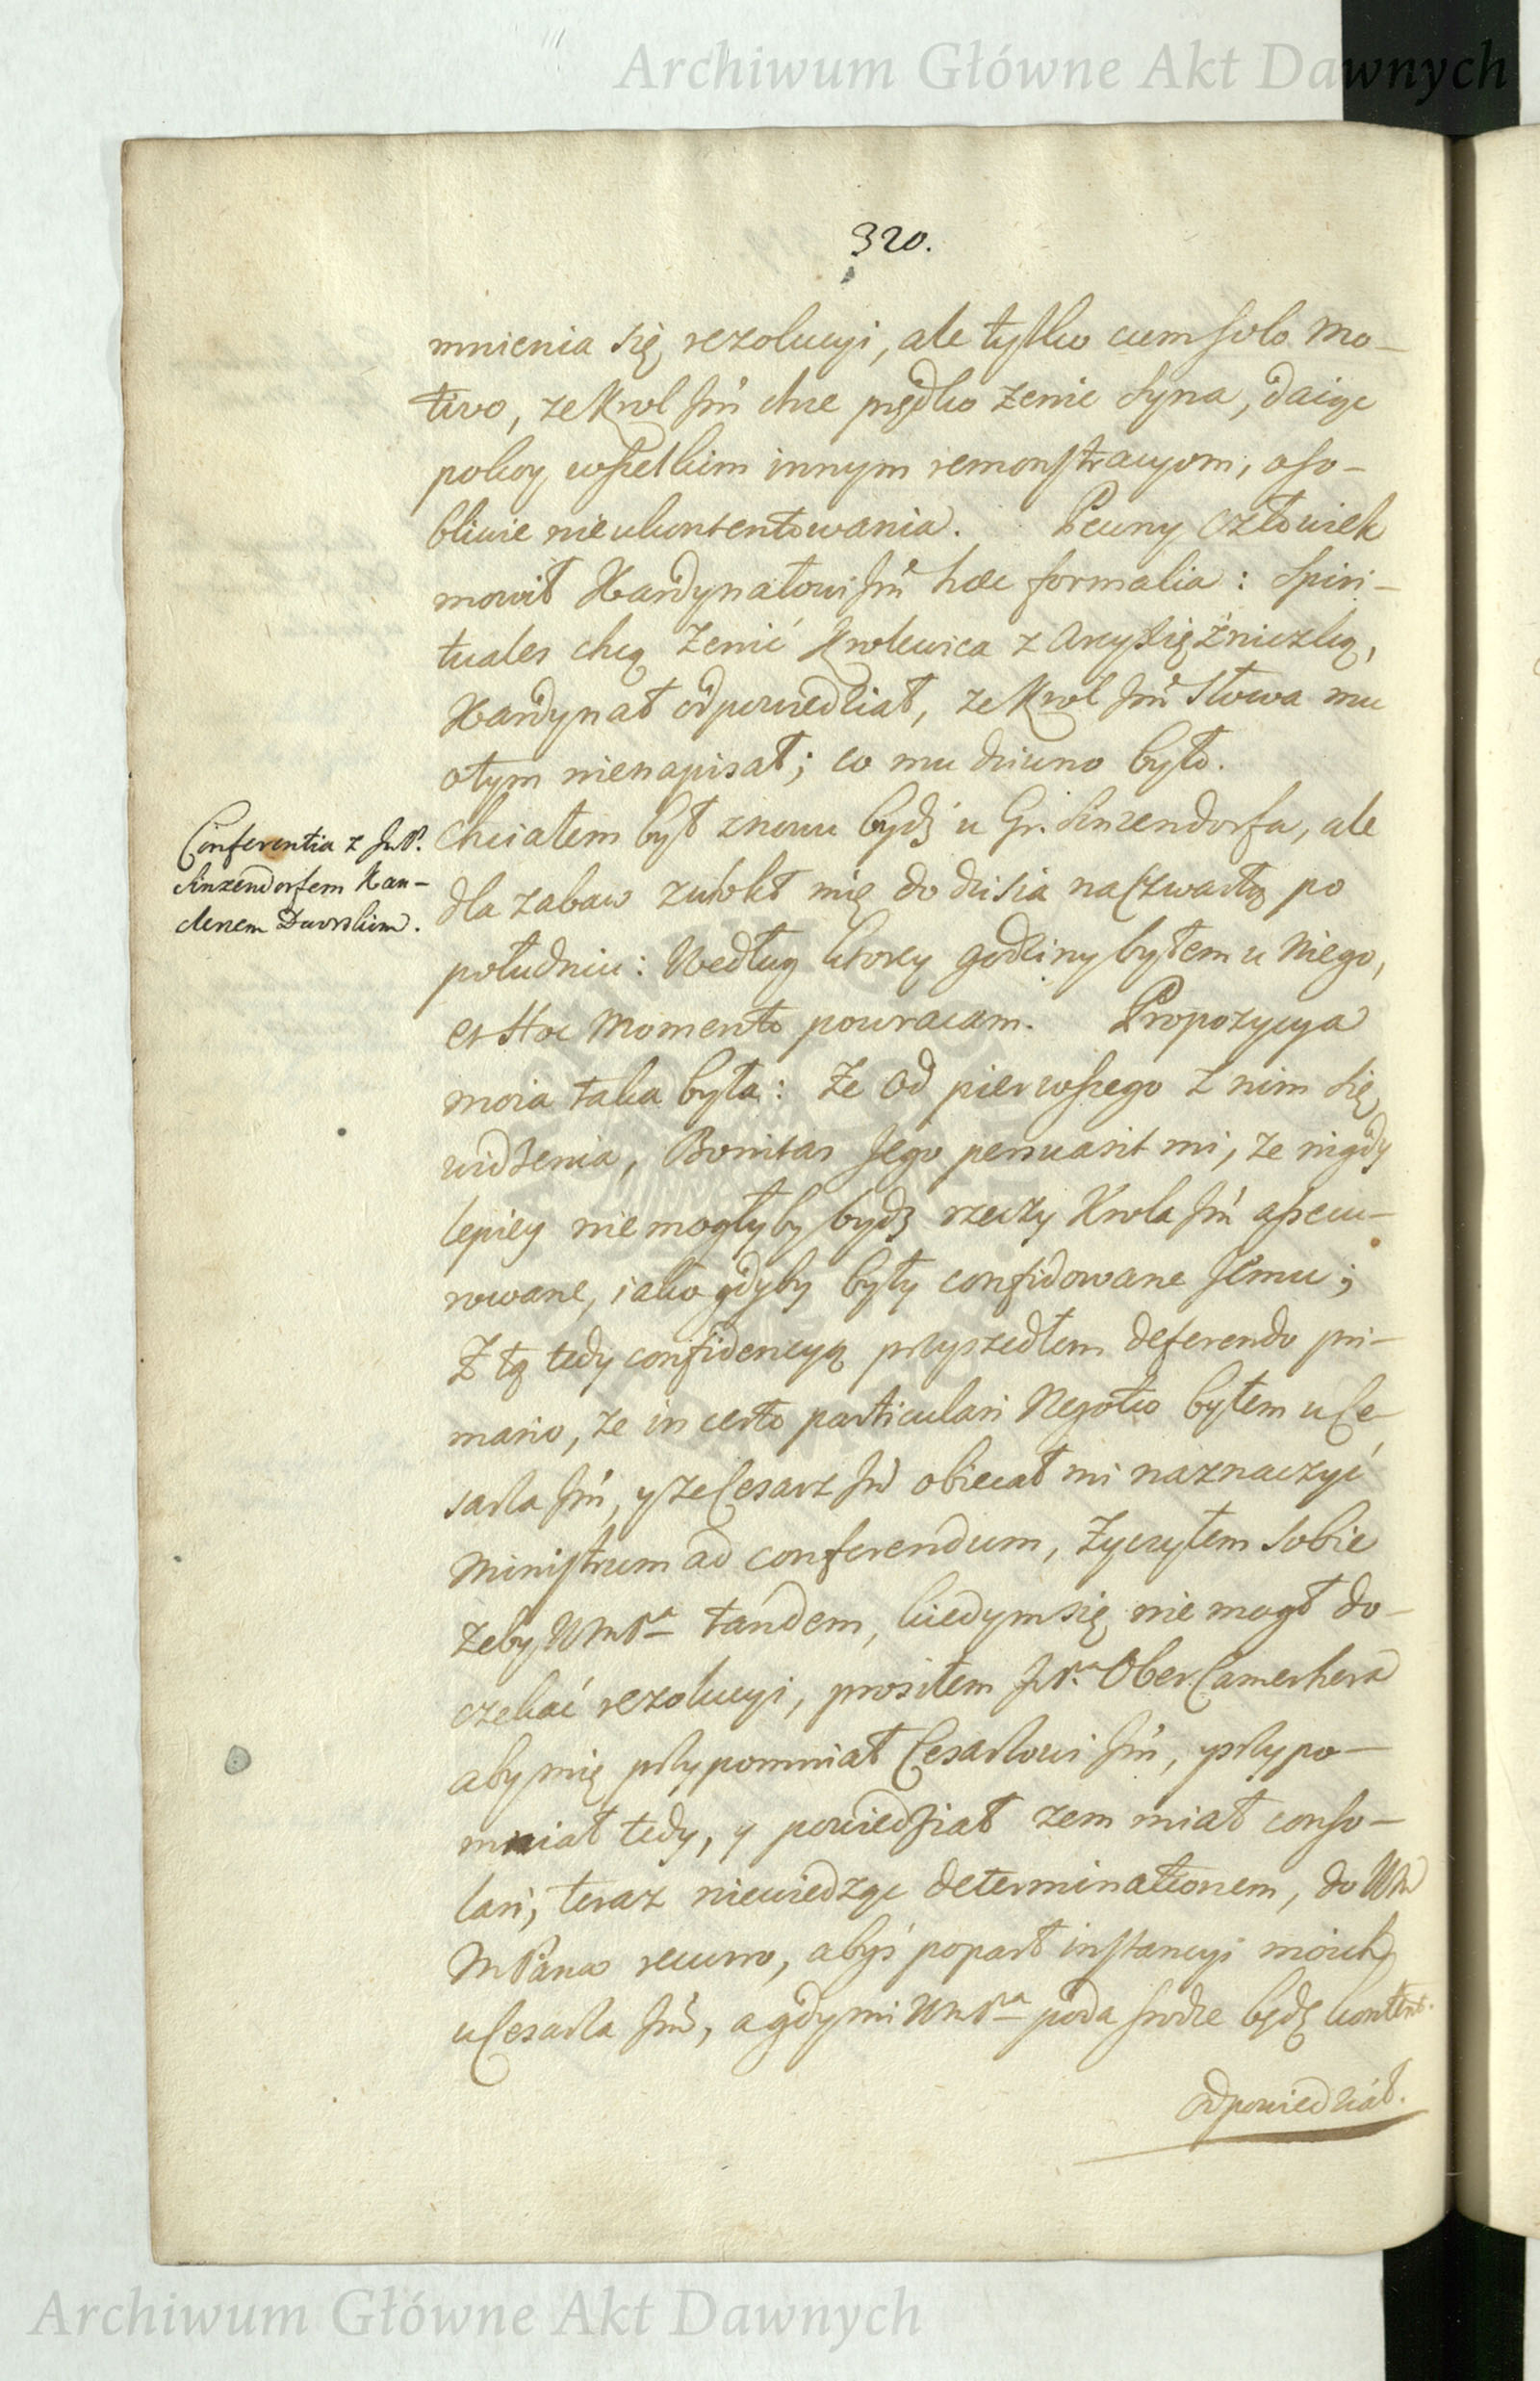 Archiwum Główne Akt Dawnych
320.
mnienia się rezolucyi, ale tylko cum solo Mo-
tivo, ze Krol Jm̃ chce prędko zenic Syna, daiąc
pokoy wszelkim innym remonstracyom, oso-
bliwie nieukontentowania. Pewny człowiek
mowił Kardynałowi Jm̃ hæc formalia: Spiri-
tuales chcą zenić Krolewica z Arcyxiężniczką,
Kardynał odpowiedział, ze Krol Jm̃ słowa mu
otym nienapisał; co mu dziwno było.
Conferentia z JmP.
Sinzendorfem Kan-
clerzem Dworskim.
Chciałem był znowu bydź u Gr. Sinzendorfa, ale
dla zabaw zwlokł mię do dzisia na czwartą po
południu: Według ktorey godziny byłem u Niego,
et Hoc Momento powracam. Propozycya
moia taka była: Ze od pierwszego z nim się
widzenia, Bonitas Jego persuasit mi, ze nigdy
lepiey nie mogłyby bydź rzeczy Krola Jm̃ assecu-
rowane, iako gdyby były confidowane Jemu;
Z tą tedy confidencyą przyszedłem deferendo pri-
mario, ze in certo particulari Negotio byłem u Ce-
sarza Jm̃, y ze Cesarz Jm̃ obiecał mi naznaczyć
Ministrum ad conferendum, zyczyłem sobie
zeby WMPa tandem, kiedym się nie mogł do-
czekać rezolucyi, prosiłem JPa Ober Camerhera
aby mię przypomniał Cesarzowi Jm̃, przypo-
mniał tedy, y powiedział zem miał conso-
lari, teraz niewiedząc determinationem, do WM
MPana recurro, abyś poparł instancyi moich
u Cesarza Jm̃, a gdy mi WMPa poda srodze będę kontent.
odpowiedział.
Archiwum Główne Akt Dawnych